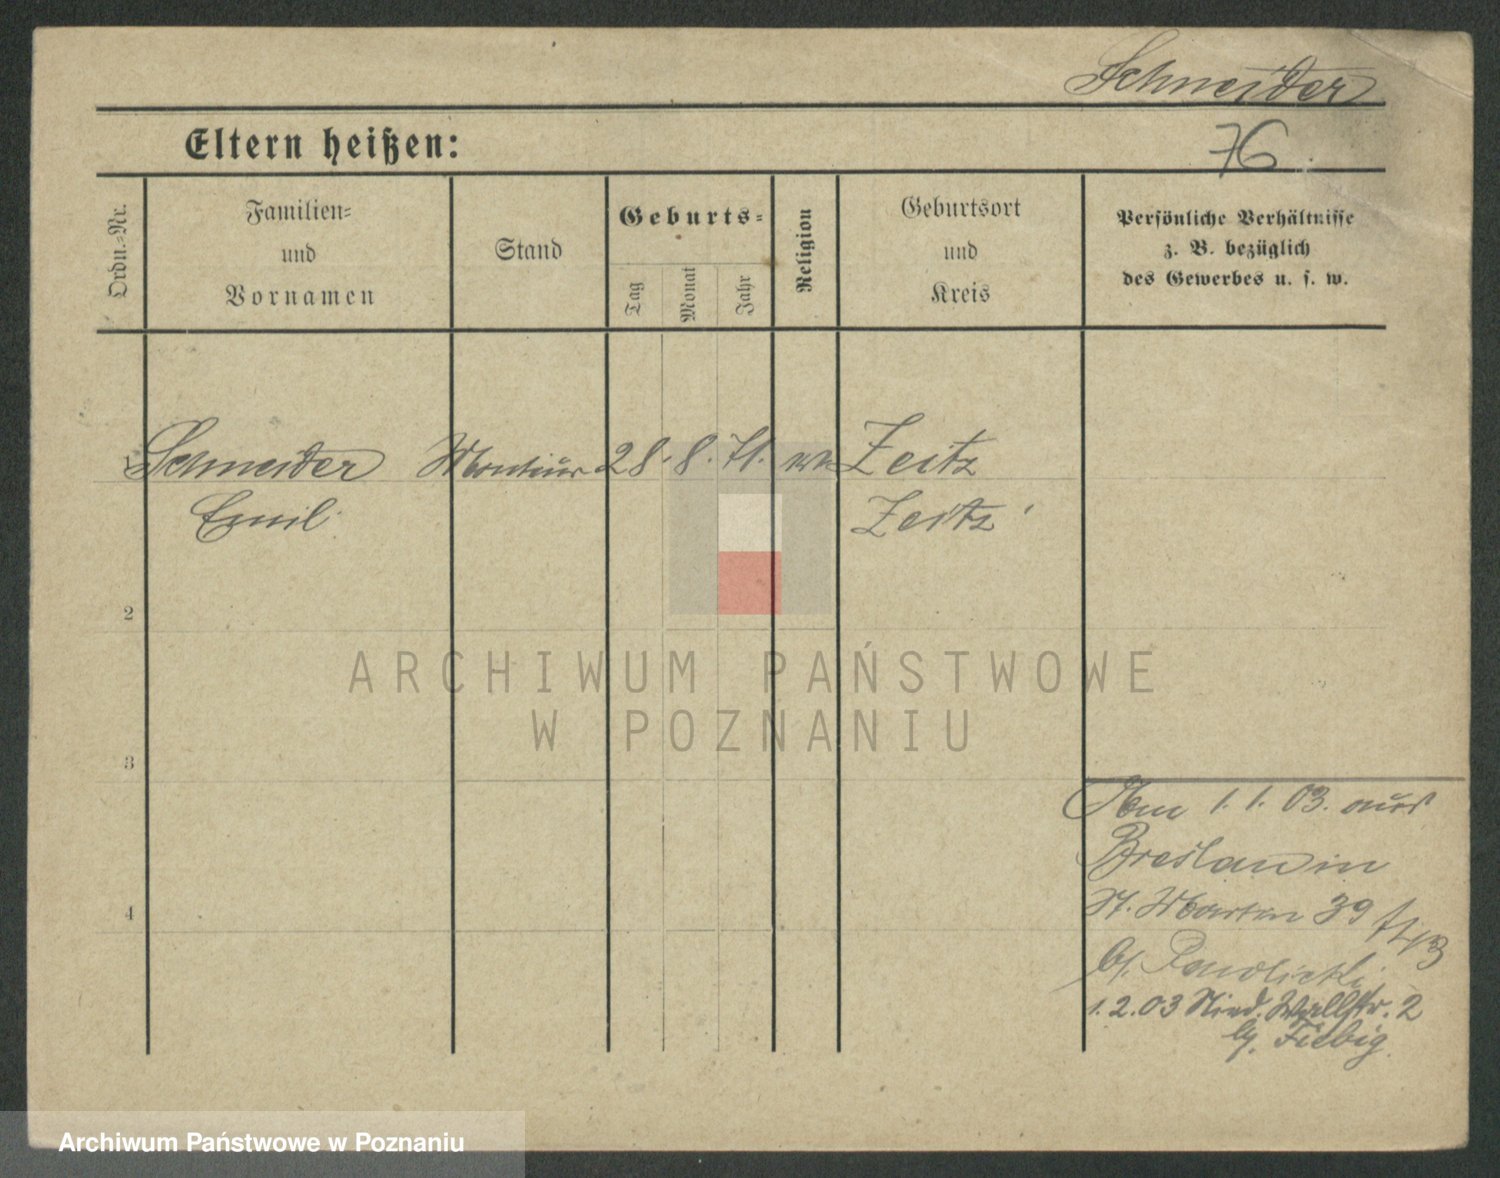 Schneider
Eltern heißen:
76
Ordn.=Nr.
Familien=
und
Vornamen
Stand
Geburts=
Tag
Monat
Jahr
Religion
Geburtsort
und
Kreis
Persönliche Verhältnisse
z. B. bezüglich
des Gewerbes u. s. w.
1 Schneider Monteur 28. 8. 71. ev. Zeitz
Emil Zeitz
2
3
4
Am 1. 1. 03. aus
Breslau in
St. Martin 39
b/.
1. 2. 03 Nied. Wallstr. 2
b/. Fiebig
ARCHIWUM PAŃSTWOWE
W POZNANIU
Archiwum Państwowe w Poznaniu